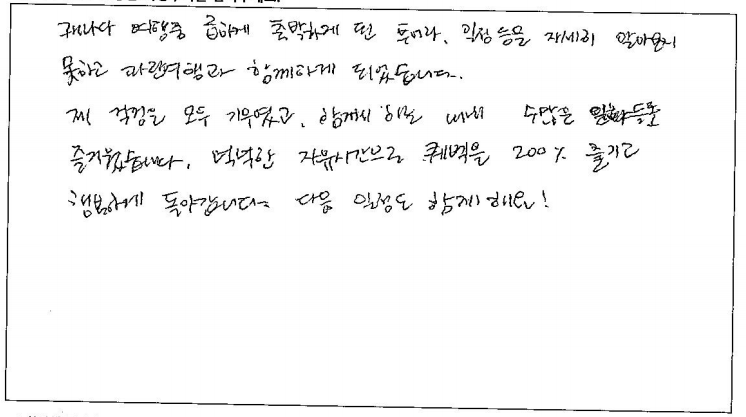 캐나다 여행중 급하게 촉박하게 떤 투어라, 일정 등을 자세히 알아보지
못하고 파란여행과 함께하게 되었습니다.
제 걱정은 모두 기우였고, 함께 하는 내내 수많은
즐거웠습니다. 넉넉한 자유시간으로 퀘벡을 200% 즐기고
행복하게 돌아갑니다. 다음 일정도 함께해요!